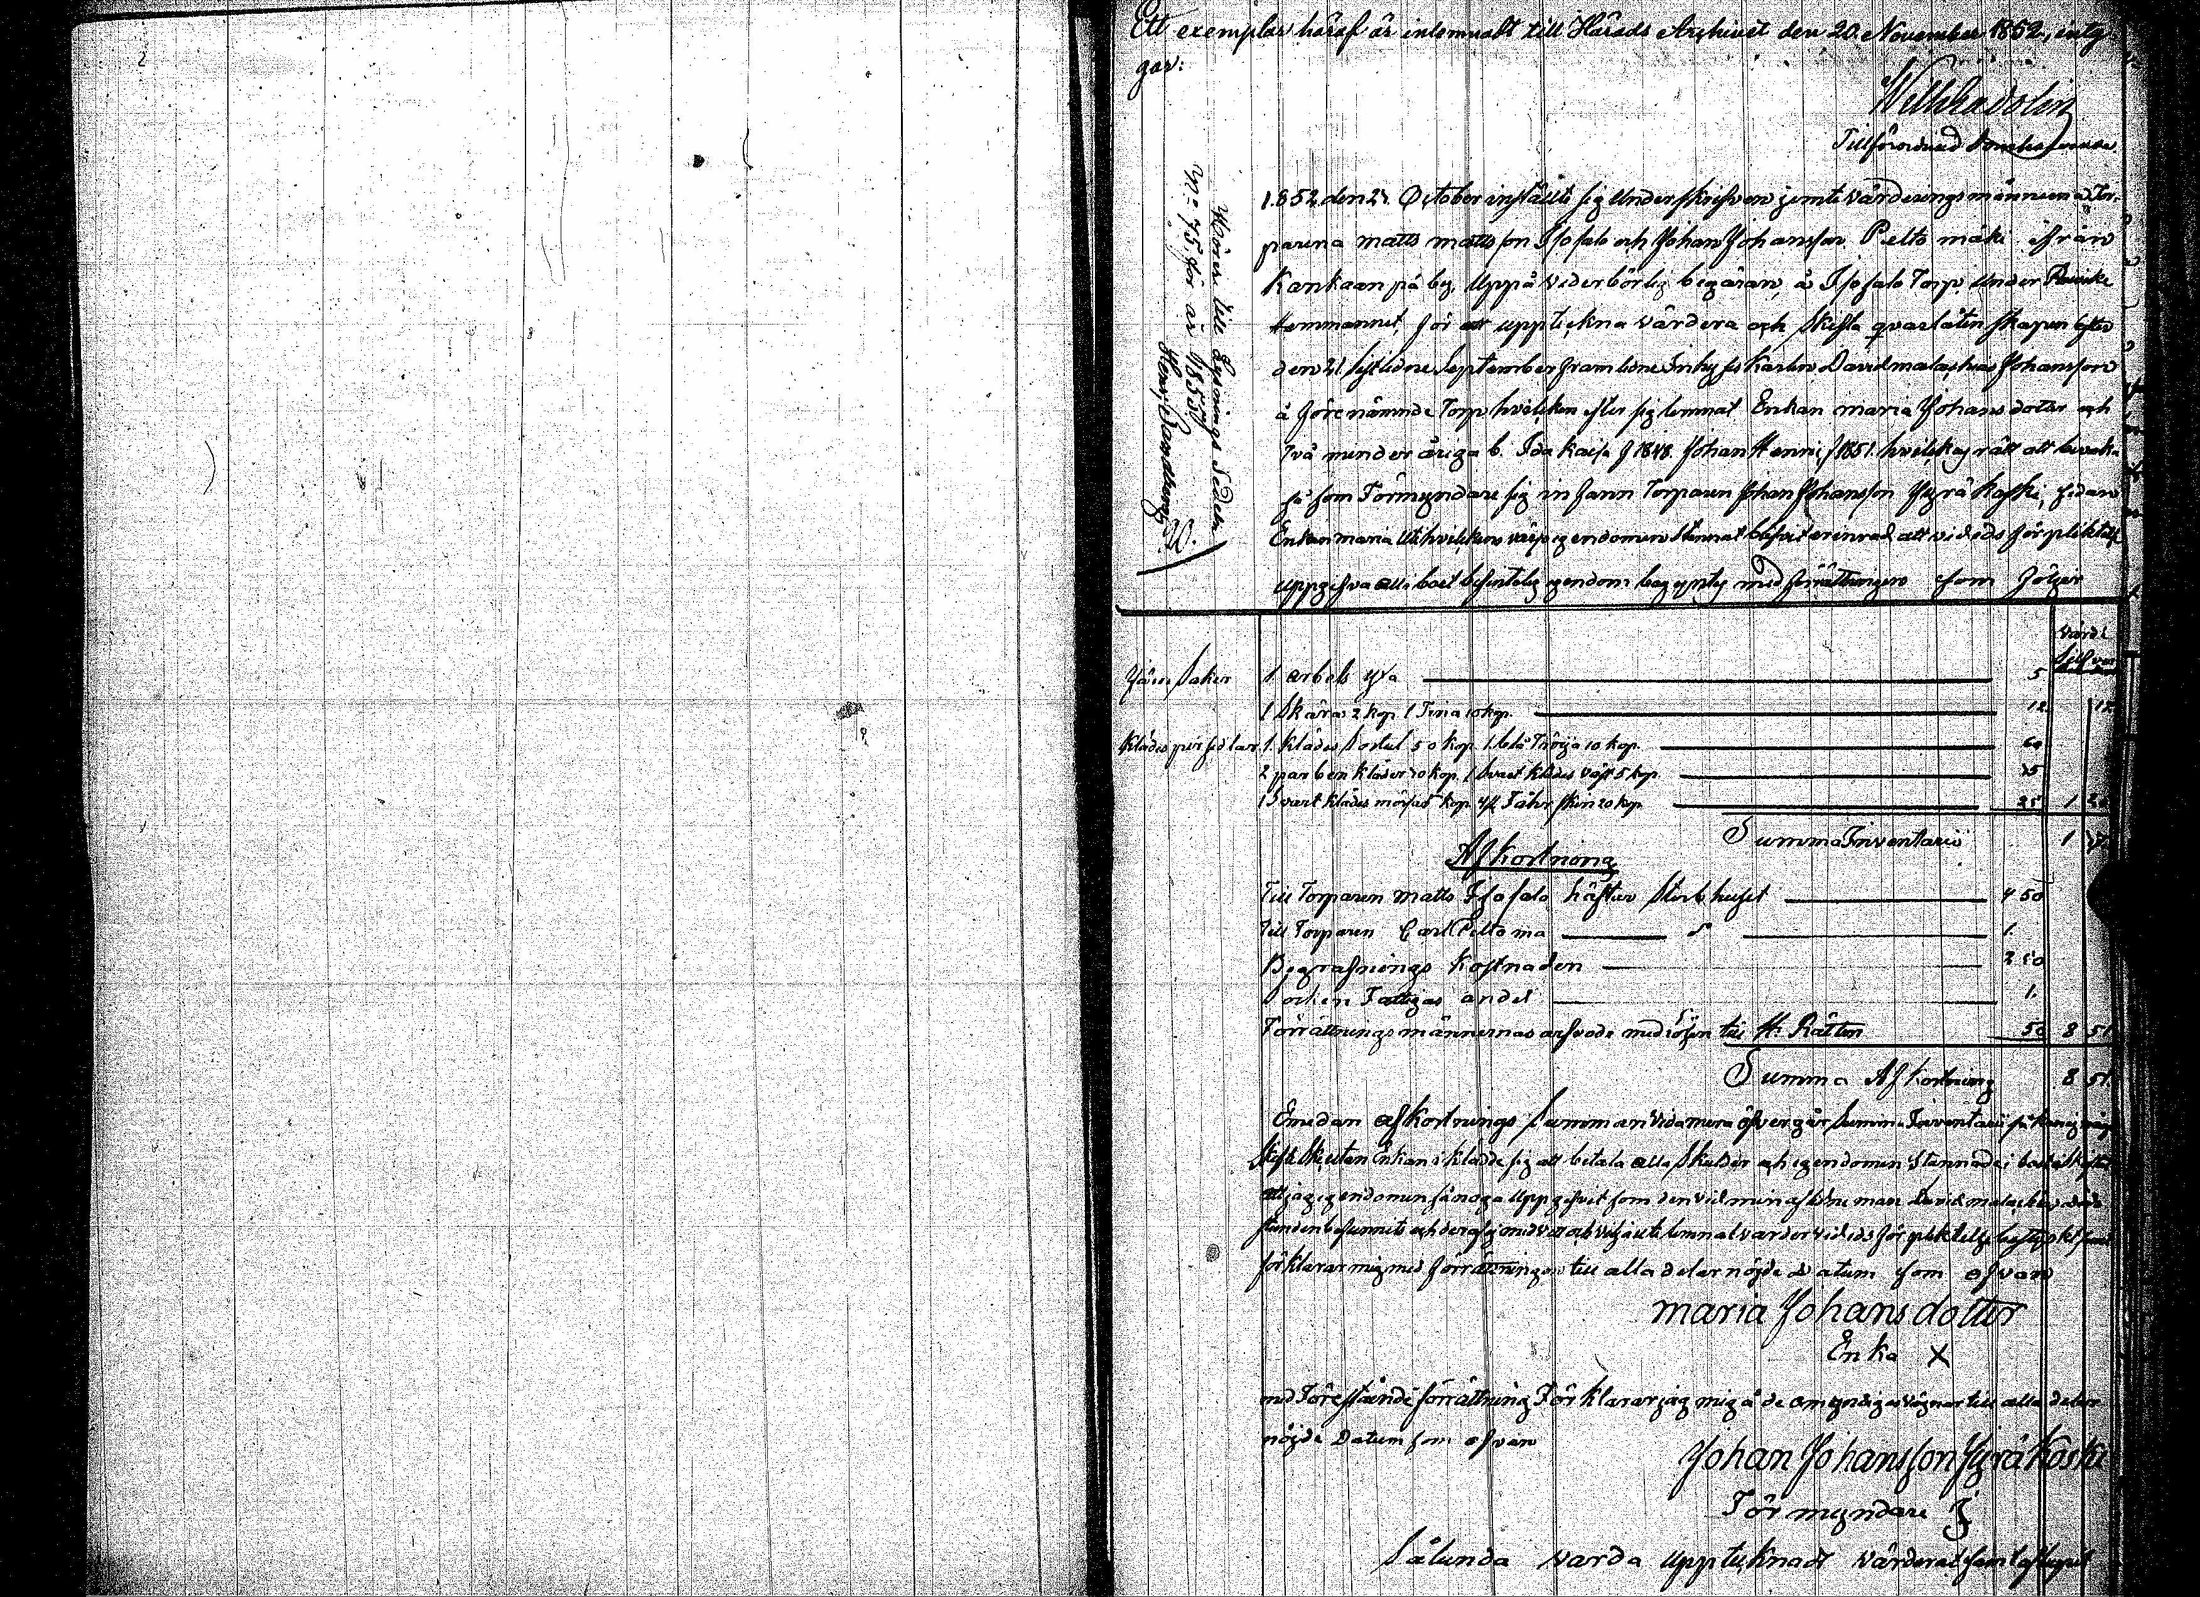 Ett exemplar häraf är inlemnadt till Härads Archivet den 20 November 1852, inty
gar:
Tillförordnad Domhafvande
1852 den 27 October inställte sig Underskrifven jemte värderingsmännerna Tor-
parena matts mattsson Isosalo och Johan Johansson Peltomäki ifrån
Kankaanpä by, Uppå vederbörlig begäran, å Isosalo Torp under
Hemmanet, för att uppteckna värdera och skifta qvarlåtenskapen efter
den 21 sistledne September framledne Inhyses Karlen David malachias Johansson
å förenämnde Torp hvilcken efter sig lemnat Enkan maria Johansdotter och
Två minderåriga b. Ida Kaisa f 1848. Johan Henric f 1851. hvilckas rätt att bevaka
så som Förmyndare sig infann Torparen Johan Johansson Jyräkoski, sedan
Enkan maria uti hvilckens värjo egendomen stannat blifvit erinrad att vid eds förpliktelse
uppgifva all i boet befintelig egendom begyntes med förrättningen som följer
Värde
Silfver
Järn Saker 1 arbets yxa 5
1 Skära 2 kop. 1 Tina 10 kop. 12 17
Klädes persedlar 1 Klädes Sortut 50 kop. 1 blå Tröija 10 kop. 60
2 par benkläder 10 kop. 1 Svart klädes väst 5 kop. 15
1 Svart klädes mössa 5 kop. 4 st Fåhrskin 20 kop. 25 1
Summa Inventarii 1
Afkortning
Till Torparen Matts Isosalo häftar Sterbhuset 4 50
Till Torparen Carl Peltoma 1.
Begrafnings Kostnaden 2 50
Socken Fattigas andel 1.
Förrättningsmännernas arfvode med lösen till H. Rätten 50 8 51
Summa Afkortning 8 51
Emedan afkortnings summan vida mera öfvergår Summa Inventarii så kan ej någon
Skifte Ske utan Enkan i klädde sig att betala alla Skulder och egendomen stannade i boet
att jag egendomen så noga uppgifvit som den vid min aflidne man David malachias döds
stunden befunnits och deraf ej med vett och vilja utelemnat varder vid eds förpliktelse
förklarar mig med förrättningen till alla delar nöjde Datum som ofvan
maria Johans dotter
Enka X
med Förestående förrättning Förklarar jag mig å de omyndigas vägnar till alla delar
nöjde Datum som ofvan
Johan Johansson Jyräkoski
Förmyndare
Sålunda varda upptecknadt värderat samt afslutat
Hörer till Lysnings Sedeln
N:o 75 för år 1853.